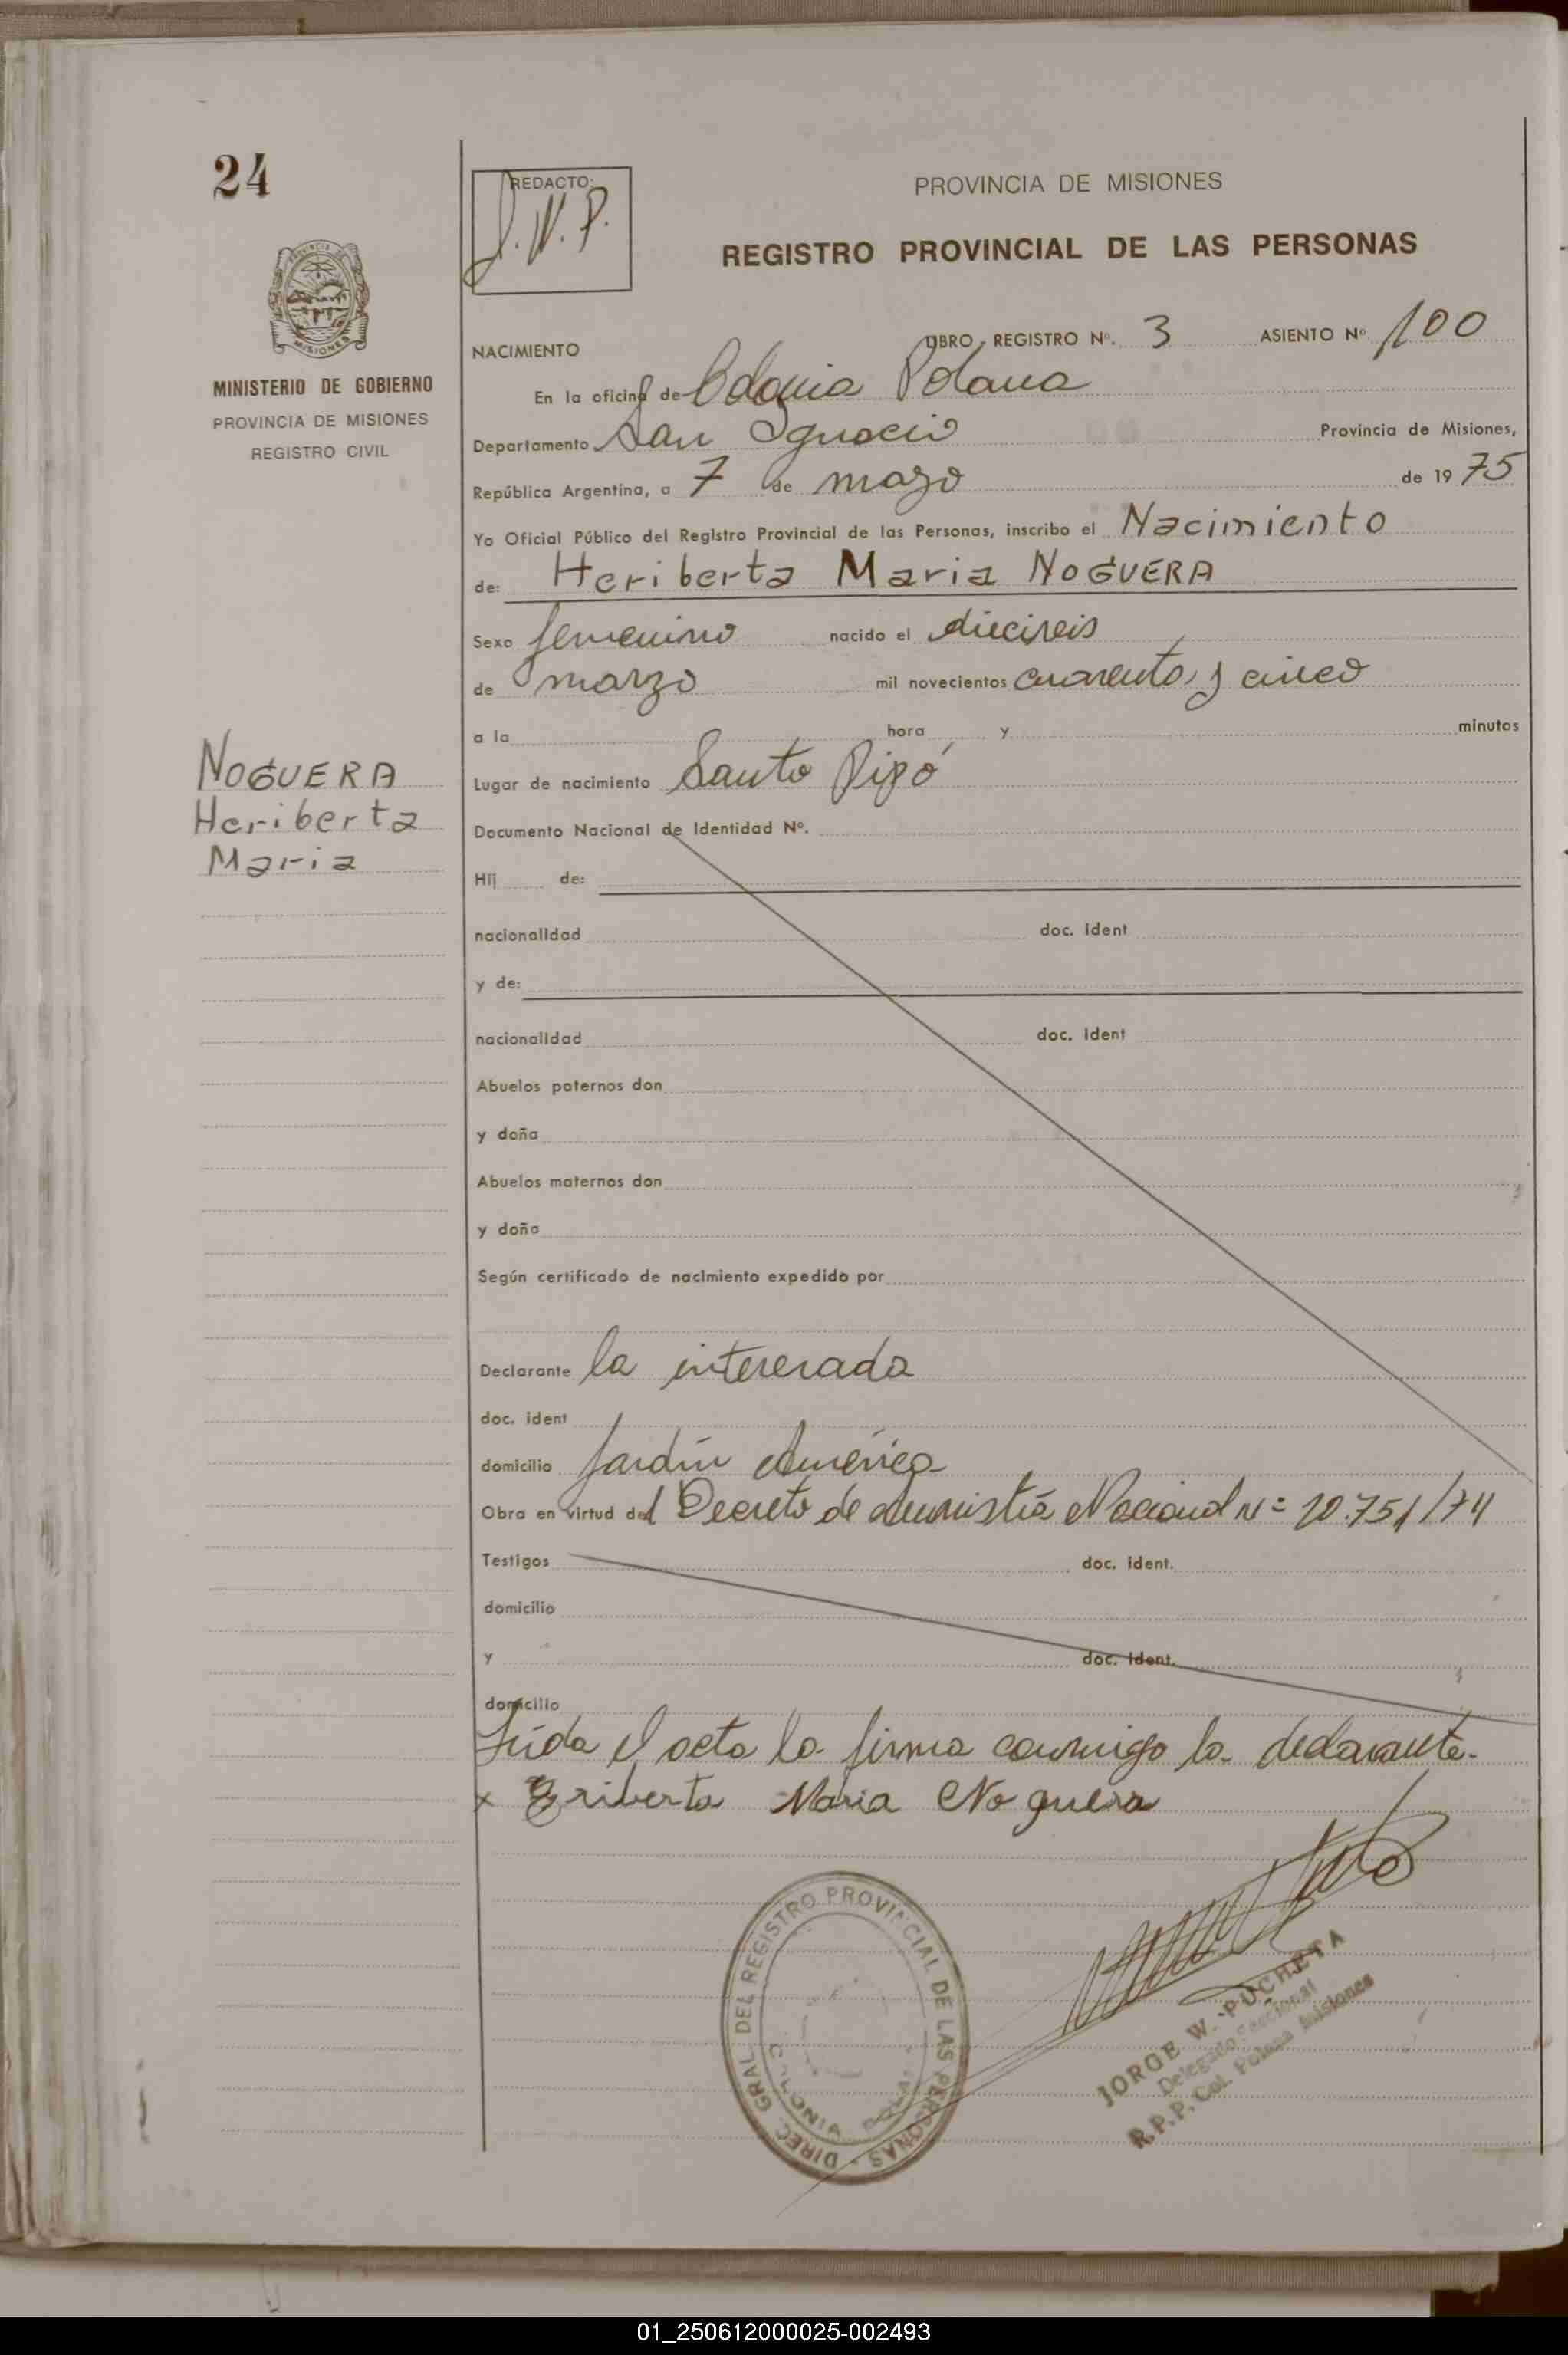 24
REDACTO:
J.W.P.
PROVINCIA DE MISIONES
REGISTRO PROVINCIAL DE LAS PERSONAS
PROVINCIA DE
MISIONES
MINISTERIO DE GOBIERNO
PROVINCIA DE MISIONES
REGISTRO CIVIL
NACIMIENTO LIBRO - REGISTRO Nº. 3 ASIENTO Nº 100
En la oficina de Colonia Polana
Departamento San Ignacio Provincia de Misiones,
República Argentina, a 7 de mayo de 1975
Yo Oficial Público del Registro Provincial de las Personas, inscribo el Nacimiento
de: Heriberta Maria NOGUERA
Sexo femenino nacido el dieciseis
de marzo mil novecientos cuarenta y cinco
a la hora y minutos
NOGUERA
Heriberta
Maria
Lugar de nacimiento Santo Pipó
Documento Nacional de Identidad Nº.
Hij de:
nacionalidad doc. ident
y de:
nacionalidad doc. ident
Abuelos paternos don
y doña
Abuelos maternos don
y doña
Según certificado de nacimiento expedido por
Declarante la interesada
doc. ident
domicilio Jardín América
Obra en virtud del Decreto de Amnistía Nacional Nº 20.751/74
Testigos doc. ident.
domicilio
y doc. ident.
domicilio
Leída el acta la firma conmigo la declarante.
x Eriberta Maria Noguera
DIREC. GRAL. DEL REGISTRO PROVINCIAL DE LAS PERSONAS
JORGE W. PUCHETA
Delegado Seccional
R.P.P. Col. Polana Misiones
01_250612000025-002493